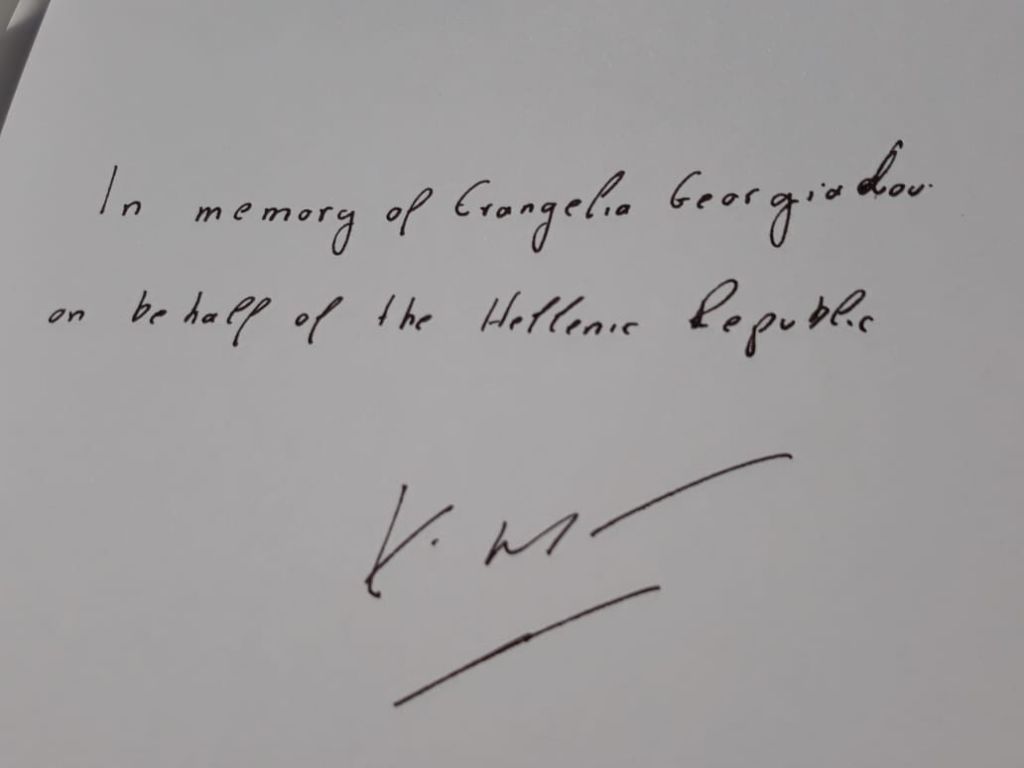 In memory of Evangelia Georgiadou
on behalf of the Hellenic Republic
K. M